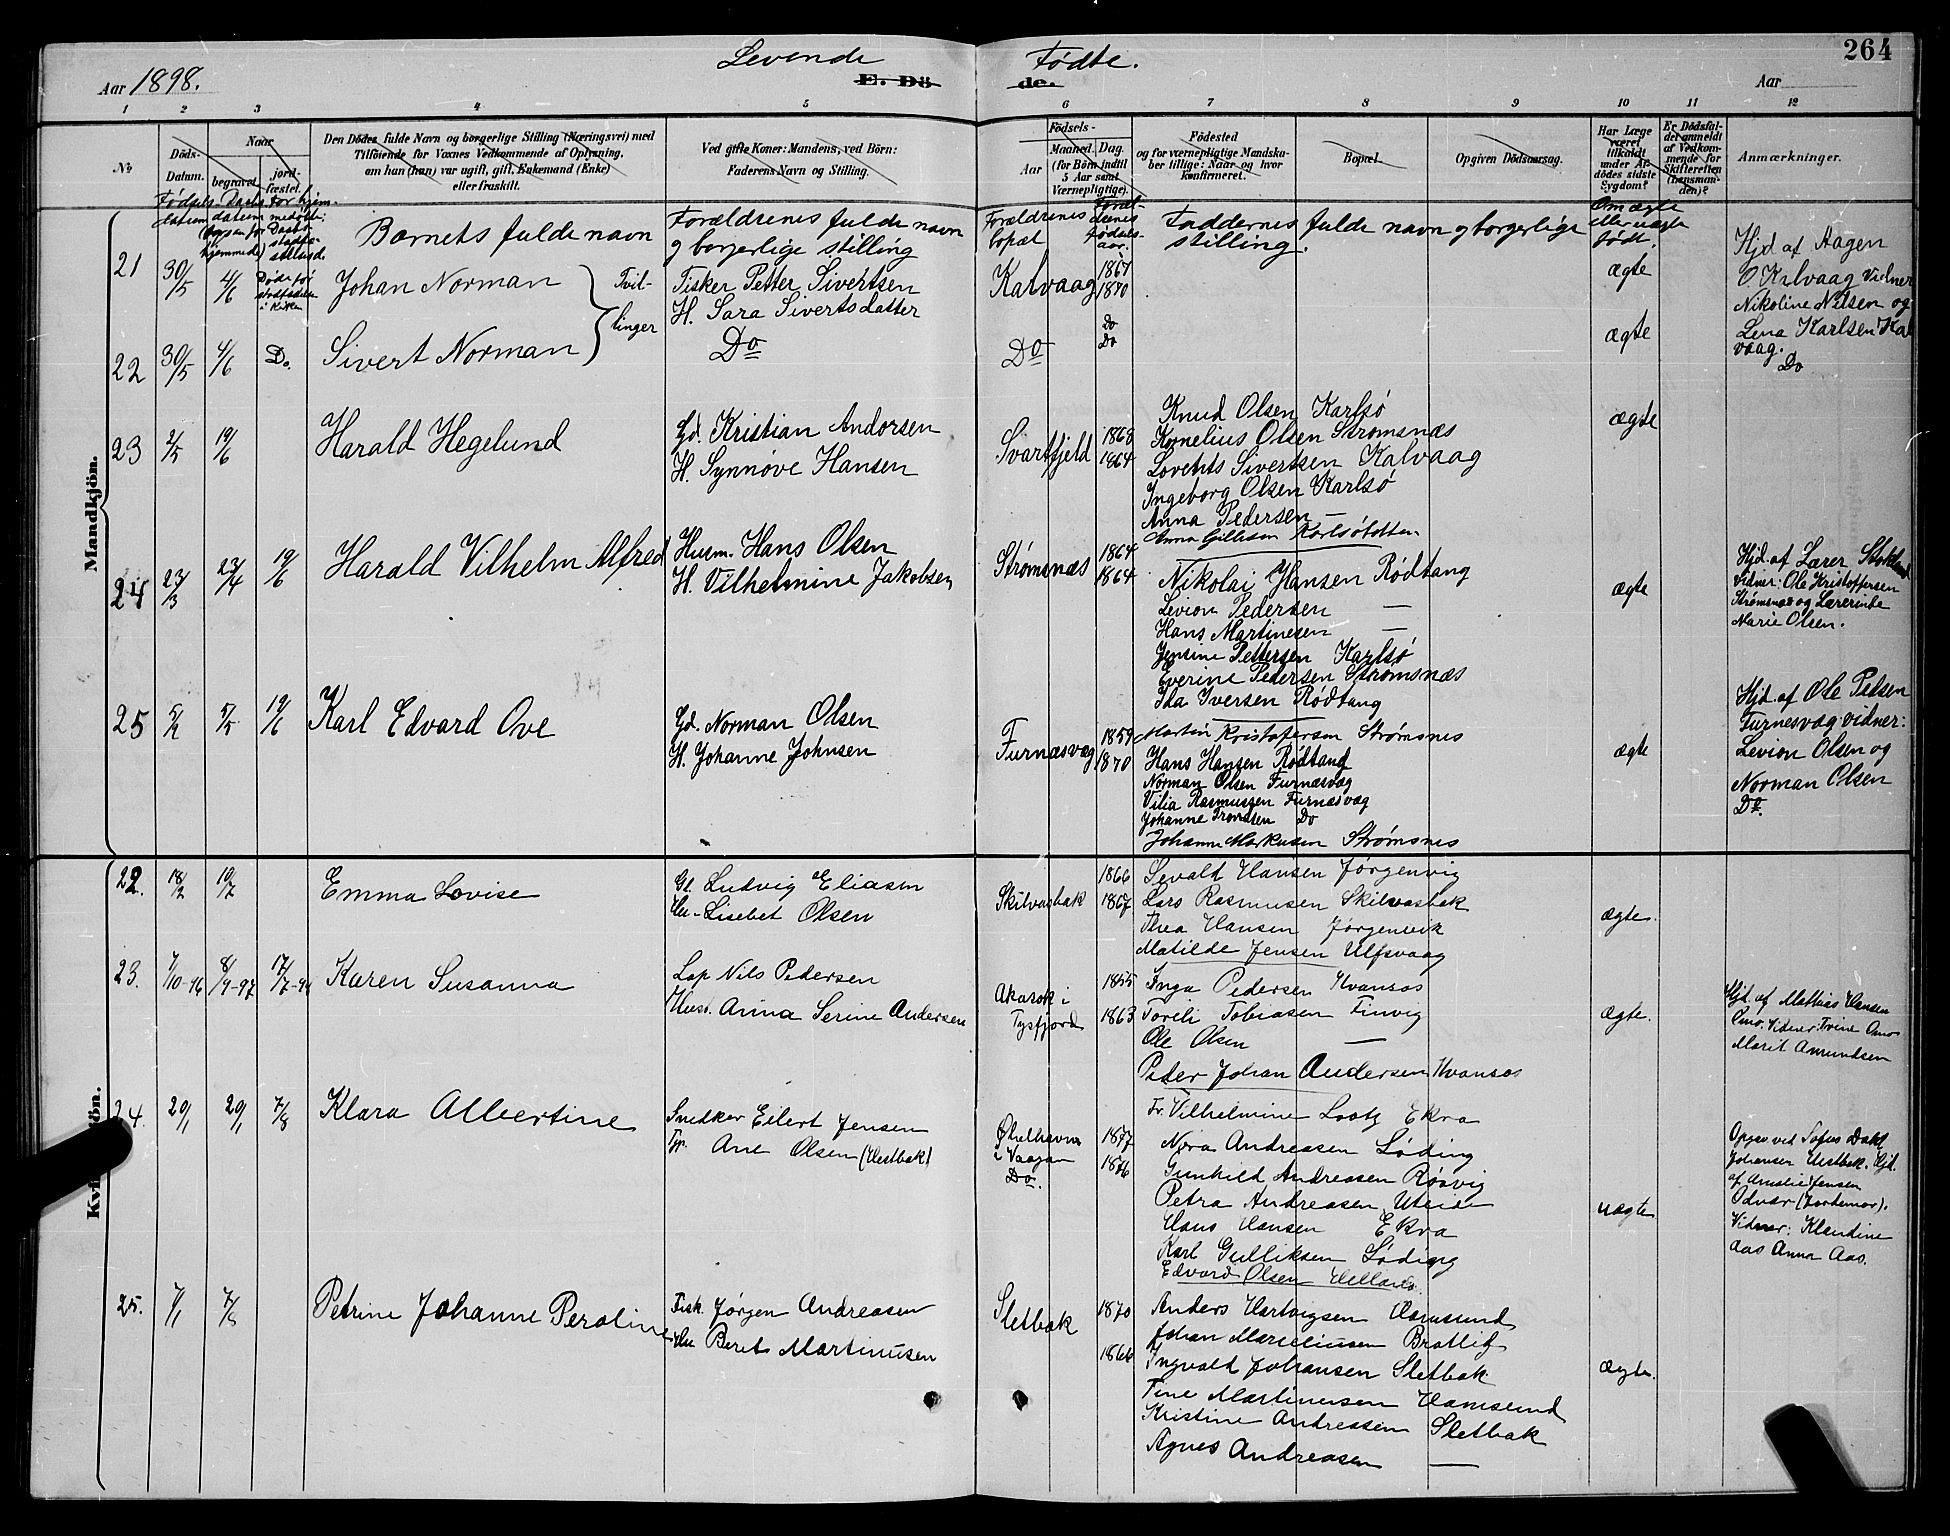 Aar 1898.
Levende Fødte.
E. Dö de.
Aar
264
1 2 3 4 5 6 7 8 9 10 11 12
№
Döds-Datum.
Naar
begravet.
jordfæstet.
Den Dödes fulde Navn og borgerlige Stilling (Næringsvei) med
Tilföiende for Voxnes Vedkommende af Oplysning,
om han (hun) var ugift, gift, Enkemand (Enke)
eller fraskilt.
Ved gifte Koner: Mandens, ved Börn:
Faderens Navn og Stilling.
Födsels-
Aar
Maaned. Dag.
(for Börn indtil
5 Aar samt
Værnepligtige).
Födested
og for værnepligtige Mandska-
ber tillige: Naar og hvor
konfirmeret.
Bopæl.
Opgiven Dödsaarsag.
Har Læge
været
tilkaldt
under Af-
dödes sidste
Sygdom?
Er Dödsfal-
det anmeldt
af Vedkom-
mende for
Skifteretten
(Lensman-
den)?
Anmærkninger.
Fødsels datum
Daabs datum
(ogsaa for hjemmedøbt)
For hjem-
medøbte:
Daabs
stadfæ-
stelsesd.
Barnets fulde navn
Forældrenes fulde navn
og borgerlige stilling
Forældrenes
bopæl
Foræl-
drenes
fødsels-
aar.
Faddernes fulde navn og borgerlige
stilling.
Om ægte
eller uægte
født.
Mandkjön.
21 30/5 4/6 Johan Norman
Tvil-
linger
Fisker Petter Sivertsen
H. Sara Sivertsdatter
Kalvaag 1867
1870
ægte
Hjd. af Hagen
O. Kalvaag Vidner
Nikoline Nilsen og
Lena Karlsen Kal
vaag.
22 30/5 4/6 Do. Sivert Norman
Do
Do
Do
Do
ægte
Do
23 2/5 19/6 Harald Hegelund
Gd. Kristian Andorsen
H. Synnøve Hansen
Svartfjeld 1868
1864
Knud Olsen Karlsø
Kornelius Olsen Strømsnæs
Lorents Sivertsen Kalvaag
Ingeborg Olsen Karlsø
Anna Pedersen —
Anna Gillesen Karlsøtotten
ægte
24 23/3 23/4 19/6 Harald Vilhelm Alfred
Husm. Hans Olsen
H. Vilhelmine Jakobsen
Strømsnæs 1864
1864
Nikolai Hansen Rødtang
Levion Pedersen —
Hans Martinesen —
Jensine Pettersen Karlsø
Everine Pedersen Strømsnæs
Ida Iversen Rødtang
ægte
Hjd. af Lærer Stokland
Vidner: Ole Kristoffersen
Strømsnæs og Lærerinde
Marie Olsen.
25 5/5 19/6 Karl Edvard Ove
Gd. Norman Olsen
H. Johanne Johnsen
Furnæsvag 1859
1870
Martin Kristofersen Strømsnes
Hans Hansen Rødtang
Norman Olsen Furnæsvag
Vilia Rasmussen Furnæsvag
Johanne Trondsen Do
Johanne Markusen Strømsnes
ægte
Hjd. af Ole Pedersen
Furnesvag vidner:
Levion Olsen og
Norman Olsen
Do.
Kvindekjön.
22. 18/2 19/7 Emma Lovise
Gd. Ludvig Eliasen
Hu. Lisebet Olsen
Skilvasbak 1866
1867
Sevald Hansen Jørgenvig
Lars Rasmusen Skilvasbak
Thea Hansen Jørgenvik
Matilde Jensen Ulfsvaag
ægte.
23. 7/10-96 8/9-97 17/7-98 Karen Susanna
Lap Nils Pedersen
Hust. Anna Serine Andersen
i
Tysfjord
1855
1863
Inga Pedersen
Toreli Tobiasen Finvig
Ole Olsen —
Peder Johan Andersen
ægte.
Hjd. af Mathias Hansen
Vidner: Trine
Marit Amundsen
24. 20/1 20/1 7/8 Klara Albertine
Snedker Eilert Jensen
Tp. Ane Olsen (Hestbak)
i Vaagan
Do.
1877
1876
Fr. Vilhelmine Lootz Ekra
Nora Andreasen Løding
Gunhild Andreasen Røsvig
Petra Andreasen
Hans Hansen Ekra
Karl Gulliksen Løding
Edvard Olsen Helland
uægte
Opgav ved Sofus Dahl
Johansen Hestbak. Hjd.
af Amalie Jensen
Odvær (Jordemor).
Vidner: Klaudine
Aas Anna Aas.
25. 7/1 7/8 Petrine Johanne Peroline
Fisk. Jørgen Andreasen
Hu Berit Martinusen
Sletbak 1870
1866
Anders Hartvigsen Hamsund
Johan Marselinsen Bratlid
Ingvald Johansen Sletbak
Tine Martinussen Hamsund
Kristine Andreassen Sletbak
Agnes Andreasen —
ægte.